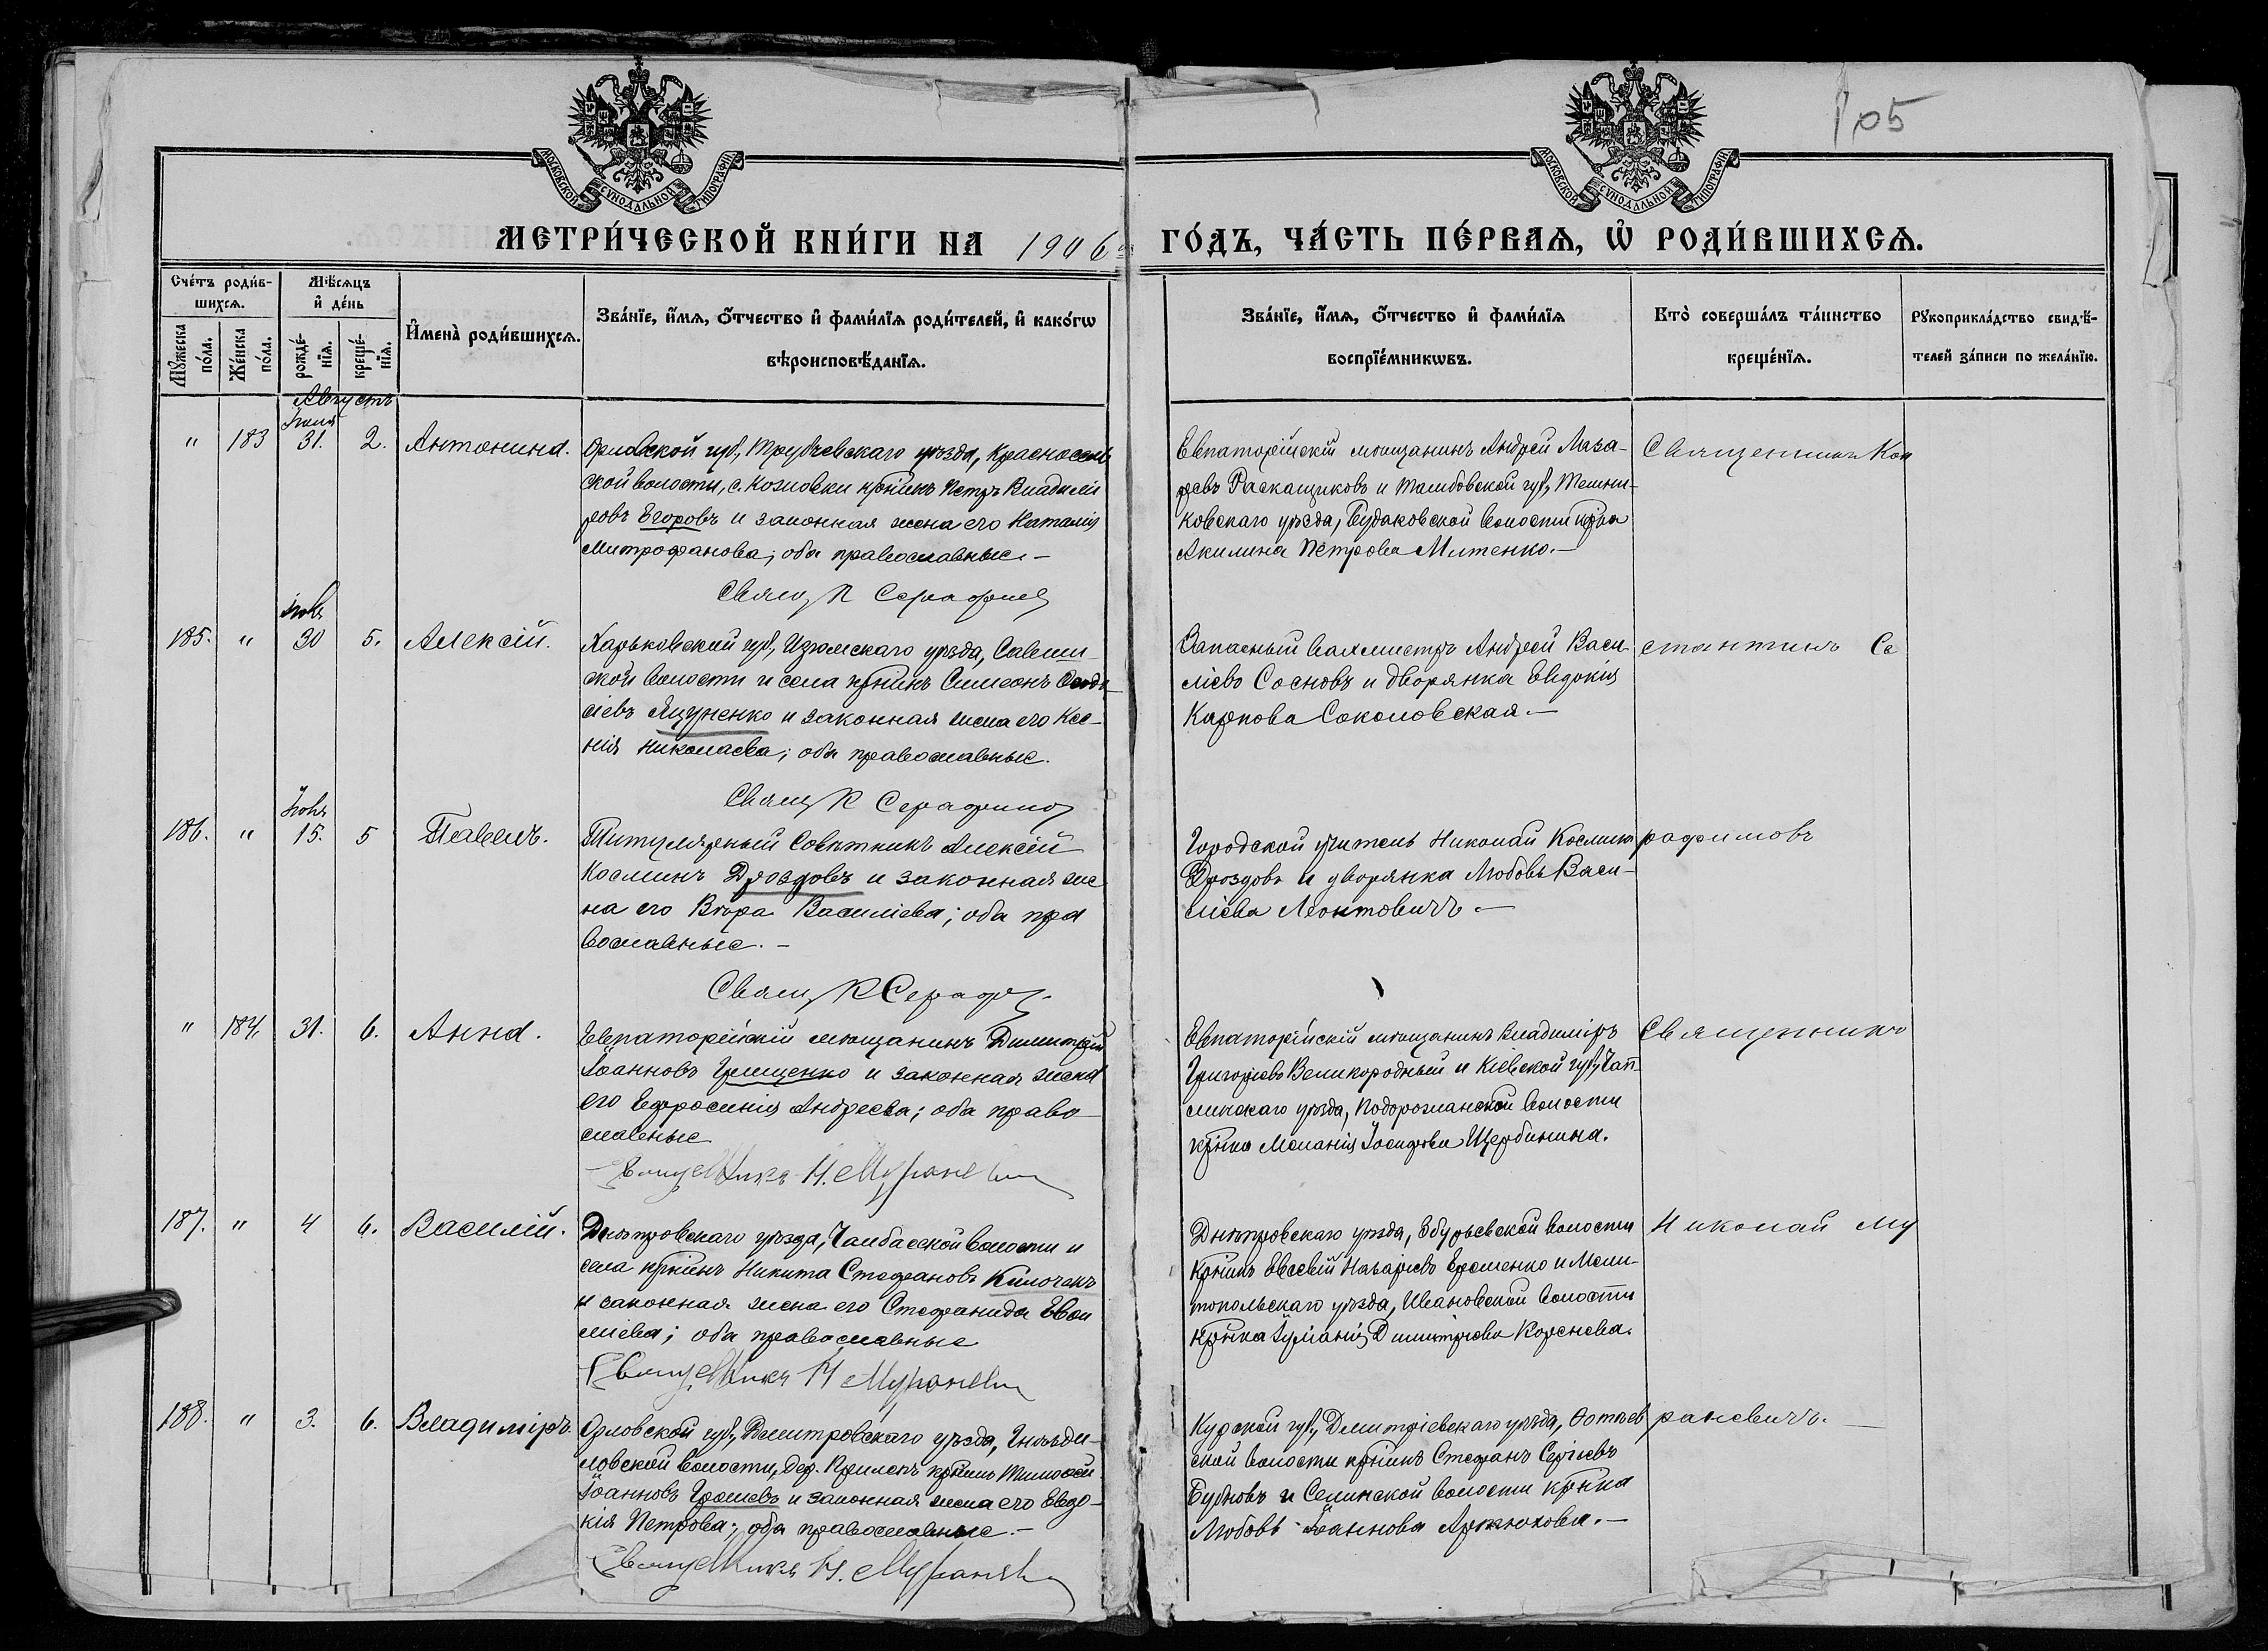 105
МОСКОВСКОЙ СУНОДАЛЬНОЙ ТИПОГРАФІИ
МОСКОВСКОЙ СУНОДАЛЬНОЙ ТИПОГРАФІИ
МЕТРИ́ЧЕСКОЙ КНИ́ГИ НА 1906 ГО́ДЪ, ЧА́СТЬ ПЕ́РВАЯ, Ѡ҆ РОДИ́ВШИХСЯ.
Сче́тъ роди́в-
шихся.
Мꙋ́жеска по́ла.
Же́нска по́ла.
Мѣ́сяцъ
и҆ де́нь
рожде́-
нїя.
креще́-
нїя.
И҆мена̀ роди́вшихся.
Зва́нїе, и҆́мя, ѻ҆́тчество и҆ фами́лїя роди́телей, и҆ како́гѡ
вѣроисповѣ́данїя.
Зва́нїе, и҆́мя, ѻ҆́тчество и҆ фами́лїя
воспрїе́мникѡвъ.
Кто̀ соверша́лъ та́инство
креще́нїя.
Рꙋкоприкла́дство свидѣ́-
телей за́писи по жела́нїю.
Августъ
Іюля
" 183 31. 2. Антонина.
Орловской губ., Трубчевскаго уѣзда, Красносель
ской волости, с. Козловки кр̃нинъ Петръ Владимі
ровъ Егоровъ и законная жена его Наталія
Митрофанова; оба православные.—
Свящ. К Серафи
Евпаторійскій мѣщанинъ Андрей Лаза-
ревъ Раскащиковъ и Тамбовской губ., Темни-
ковскаго уѣзда, Кудаковской волости кр̃нка
Акилина Петрова Митенко.—
Священникъ Кон
185. " 30 5. Алексій.
Харьковской губ., Изюмскаго уѣзда, Савин
ской волости и села кр̃нинъ Симеонъ Ѳеодо
сіевъ Яцуненко и законная жена его Ксе-
нія Николаева; оба православные.
Свящ К Серафимо
Запасный вахмистръ Андрей Васи-
ліевъ Сосновъ и дворянка Евдокія
Карпова Соколовская.—
стантинъ Се
186. " 15. 5 Павелъ.
Титулярный Совѣтникъ Алексій
Косминъ Дроздовъ и законная же
на его Вѣра Василіева; оба пра
вославные.—
Свящ К Сераф
Городской учитель Николай Косминъ
Дроздовъ и дворянка Любовь Васи-
ліева Леонтовичъ.—
рафимовъ
" 184. 31. 6. Анна.
Евпаторійскій мѣщанинъ Димитрій
Іоанновъ Грищенко и законная жена
его Евфросинія Андреева; оба право-
славные
Священникъ Н. Муранев
Евпаторійскій мѣщанинъ Владиміръ
Григорьевъ Великородный и Кіевской губ.,
уѣзда, волости
кр̃нка Меланія Іосифова Щербинина.
Священникъ
187. " 4 6. Василій.
Днѣпровскаго уѣзда, Чалбасской волости и
села кр̃нинъ Никита Стефановъ Килочекъ
и законная жена его Стефанида
; оба православные
Священникъ Н Муранев
Днѣпровскаго уѣзда, Збурьевской волости
кр̃нинъ Евсевій Назаріевъ Еременко и Мели-
топольскаго уѣзда, Ивановской волости
кр̃нка Іуліанія Димитріева Коренева.
Николай Му
188. " 3. 6. Владиміръ.
Орловской губ., Дмитровскаго уѣзда, Гнѣзди-
ловской волости, дер. кр̃нинъ Тимоѳей
Іоанновъ и законная жена его Евдо-
кія Петрова; оба православные.—
Священникъ Н. Муранев
Курской губ., Дмитріевскаго уѣзда,
ской волости кр̃нинъ Стефанъ Сергіевъ
Бубновъ и Селинской волости кр̃нка
Любовь Іоаннова Арнюкова.—
раневичъ.—